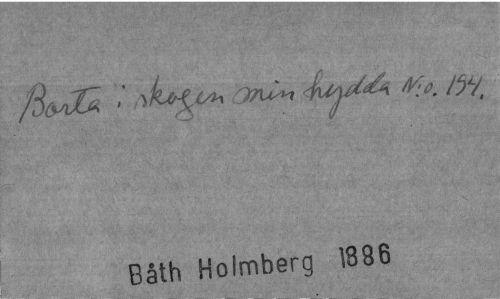 Borta i skogen min hydda N:o. 194.
Båth Holmberg 1886